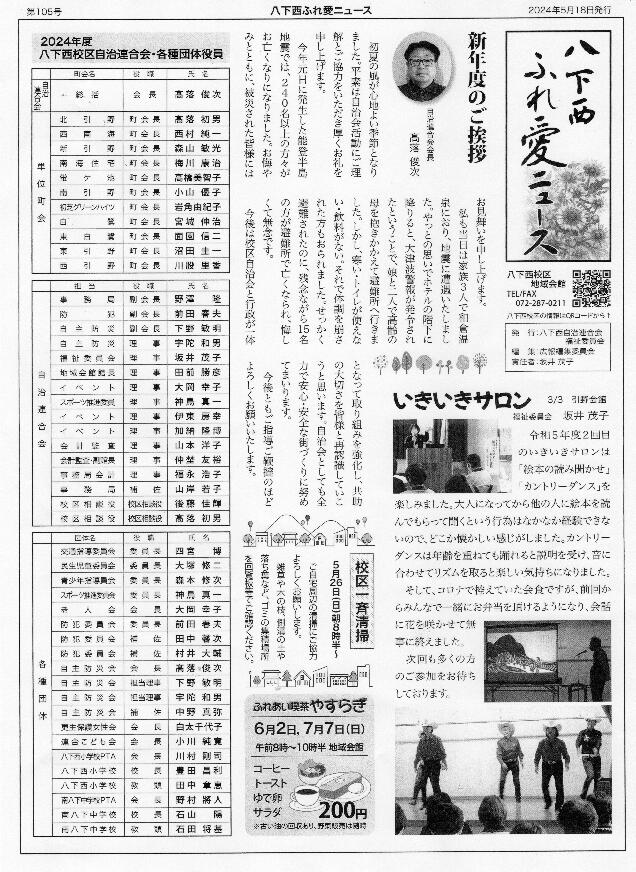 第105号
八下西ふれ愛ニュース
2024年5月18日発行
八下西
ふれ愛ニュース
八下西校区
地域会館
TEL/FAX
072-287-0211
八下西校区の情報はQRコードから↑
発行:八下西自治連合会
福祉委員会
編集:広報編集委員会
責任者:坂井茂子
新年度のご挨拶
自治連合会会長
髙落 俊次
初夏の風が心地よい季節となり
ました。平素は自治会活動にご理
解とご協力をいただき厚くお礼を
申し上げます。
今年元日に発生した能登半島
地震では、240名以上の方々が
お亡くなりになりました。お悔や
みとともに、被災された皆様には
お見舞いを申し上げます。
私も当日は家族3人で和倉温
泉におり、地震に遭遇いたしまし
た。やっとの思いでホテルの階下に
降りると、大津波警報が発令され
たということで、娘と二人で高齢の
母を抱きかかえて避難所へ行きま
した。しかし、寒い・トイレが使えな
い・飲料がない。それで体調を崩さ
れた方もおられました。せっかく
避難されたのに、残念ながら15名
の方が避難所で亡くなられ、悔し
くて無念です。
今後は校区自治会と行政が一体
となって取り組みを強化し、共助
の大切さを皆様と再認識していこ
うと思います。自治会としても全
力で安心・安全な街づくりに努め
てまいります。
今後ともご指導ご鞭撻のほど
よろしくお願いいたします。
2024年度
八下西校区自治連合会・各種団体役員
町会名 役職 氏名
自治連合会 総括 会長 髙落俊次
単位町会
北引野 町会長 髙落初男
西南海 町会長 西村純一
新引野 町会長 森山敏光
南海住宅 町会長 梅川康治
菅ケ池 町会長 髙橋美智子
南引野 町会長 小山優子
初芝グリーンハイツ 町会長 岩角由紀子
白鷺 町会長 宮城伸治
東白鷺 町会長 面園信二
東引野 町会長 沼田圭一
西引野 町会長 川股里香
担当 役職 氏名
自治連合会
事務局 副会長 野澤隆
防犯 副会長 前田春夫
自主防災 副会長 下野敏明
自主防災 理事 宇陀和男
福祉委員会 理事 坂井茂子
地域会館館長 理事 田前勝彦
イベント 理事 大岡幸子
スポーツ推進委員 理事 神島真一
イベント 理事 伊東房幸
イベント 理事 加緒隆博
会計監査 理事 山本洋子
会計監査・副館長 理事 仲埜友裕
事務局会計 理事 福永浩子
事務局 補佐 山岸若子
校区相談役 校区相談役 後藤佳輝
校区相談役 校区相談役 髙落初男
団体名 役職 氏名
各種団体
交通指導委員会 委員長 四宮博
民生児童委員会 委員長 大塚修二
青少年指導員会 委員長 森本修次
スポーツ推進委員会 委員長 神島真一
老人会 会長 大岡幸子
防犯委員会 委員長 前田春夫
防犯委員会 補佐 田中馨次
防犯委員会 補佐 村井大輔
自主防災会 会長 髙落俊次
自主防災会 担当理事 下野敏明
自主防災会 担当理事 宇陀和男
自主防災会 補佐 中野真弥
更生保護女性会 会長 白太千代子
連合こども会 会長 小川純寛
八下西小学校PTA 会長 川村剛司
八下西小学校 校長 豊田昌利
八下西小学校 教頭 田中章恵
南八下中学校PTA 会長 野村將人
南八下中学校 校長 石山陽
南八下中学校 教頭 石田将基
いきいきサロン
3/3 引野会館
福祉委員会 坂井茂子
令和5年度2回目
のいきいきサロンは
「絵本の読み聞かせ」
「カントリーダンス」を
楽しみました。大人になってから他の人に絵本を読
んでもらって聞くという行為はなかなか経験できない
ので、どこか懐かしい感じがしました。カントリー
ダンスは年齢を重ねても踊れると説明を受け、音に
合わせてリズムを取ると楽しい気持ちになりました。
そして、コロナで控えていた会食ですが、前回か
らみんなで一緒にお弁当を頂けるようになり、会話
に花を咲かせて無
事に終えました。
次回も多くの方
のご参加をお待ち
しております。
校区一斉清掃
5月26日(日)朝8時半~
ご自宅周辺の清掃にご協力
よろしくお願いします。
雑草や木の枝、側溝の土や
落ち葉など、ゴミの集積場所
を回覧板等でご確認ください。
ふれあい喫茶 やすらぎ
6月2日、7月7日(日)
午前8時~10時半 地域会館
コーヒー
トースト
ゆで卵
サラダ
200円
※古い油の回収あり、野菜販売は随時